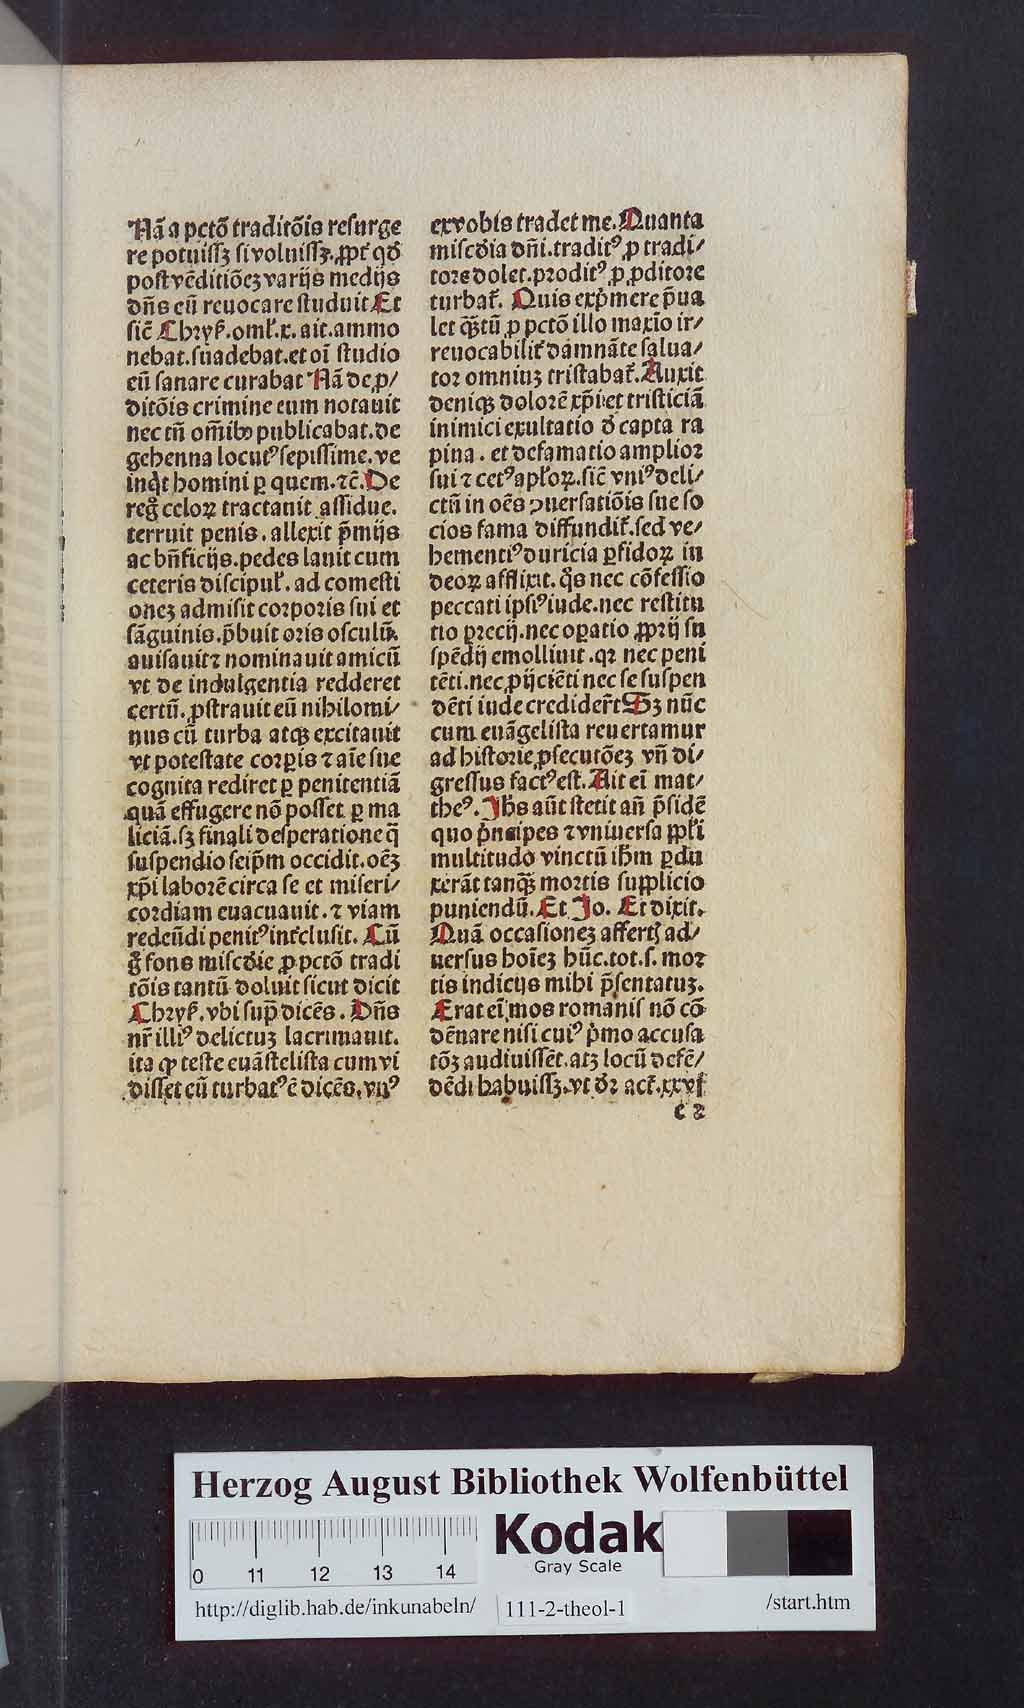 Nã a pctõ traditõis resurge
re potuissꝫ si voluissꝫ. ꝓpt̃ qđ
post vẽditiõeꝫ varijs medijs
dñs eũ reuocare studuit Et
sic̃ Chryſ̃. oml̃. x. ait. ammo
nebat. suadebat. et oĩ studio
eũ sanare curabat Nã de ꝓ/
ditõis crimine eum notauit
nec tñ om̃ibꝰ publicabat. de
gehenna locutꝰ sepissime. ve
inq̃t homini ꝑ quem. ⁊c̃. De
reg̃ celoꝝ tractauit assidue.
terruit penis. allexit p̃mijs
ac bñficijs. pedes lauit cum
ceteris discipul̃. ad comesti
oneꝫ admisit corporis sui et
sãguinis. p̃buit oris osculũ.
auisauit ⁊ nominauit amicũ
vt de indulgentia redderet
certũ. ꝓstrauit eũ nihilomi/
nus cũ turba atqꝫ excitauit
vt potestate corꝑis ⁊ aĩe sue
cognita rediret ꝑ penitentiã
quã effugere nõ posset ꝑ ma
liciã. sꝫ finali desperatione q̃
suspendio seip̃m occidit. oẽꝫ
xp̃i laborẽ circa se et miseri/
cordiam euacuauit. ⁊ viam
redeũdi penitꝰ int̃clusit. Cũ
g̃ fons misc̃đie ꝓ pctõ tradi
tõis tantũ doluit sicut dicit
Chryſ̃. vbi sup̃ dicẽs. Dñs
nr̃ illiꝰ delictuꝫ lacrimauit.
ita ꝙ teste euãstelista cum vi
disset eũ turbatꝰ ẽ dicẽs, vnꝰ
ex vobis tradet me. Quanta
misc̃đia dñi. traditꝰ ꝓ tradi/
tore dolet. proditꝰ ꝓ ꝓditore
turbat̃. Quis exp̃mere p̃ua
let qꝫtũ ꝓ pctõ illo maxĩo ir/
reuocabilit̃ damnãte salua/
tor omniuꝫ tristabat̃. Auxit
deniqꝫ dolorẽ xp̃i et tristiciã
inimici exultatio đ capta ra
pina. et defamatio amplior
sui ⁊ cetꝰ apl̃oꝝ. sic̃ vniꝰ deli/
ctũ in oẽs ꝯuersatiõis sue so
cios fama diffundit̃. sed ve/
hementiꝰ duricia ꝑfidoꝝ iu
deoꝝ afflixit. q̃s nec cõfessio
peccati ipsiꝰ iude. nec restitu
tio p̃recij. nec oꝑatio ꝓprij su
spẽdij emolliuit. qꝛ nec peni
tẽti. nec ꝓijciẽti nec se suspen
dẽti iude crediderũt Sꝫ nũc
cum euãgelista reuertamur
ad historie ꝓsecutõeꝫ vñ di/
gressus factꝰ est. Ait eĩ mat/
theꝰ. Jhs aũt stetit añ p̃sidẽ
quo p̃ncipes ⁊ vniuersa ppl̃i
multitudo vinctũ ihm̃ ꝑdu
xerãt tanqꝫ mortis supplicio
puniendũ. Et Jo. Et dixit.
Quã occasionez affertꝭ ad/
uersus hoĩeꝫ hũc. tot. s. mor
tis indicijs mihi p̃sentatuꝫ.
Erat eĩ mos romanis nõ cõ
dẽnare nisi cuiꝰ p̃mo accusa
tõꝫ audiuissẽt. atꝫ locũ defẽ/
dẽdi habuissꝫ. vt đꝛ act̃. xxvſ
c 2
Herzog August Bibliothek Wolfenbüttel
Kodak
Gray Scale
0 11 12 13 14
http://diglib.hab.de/inkunabeln/ 111-2-theol-1 /start.htm